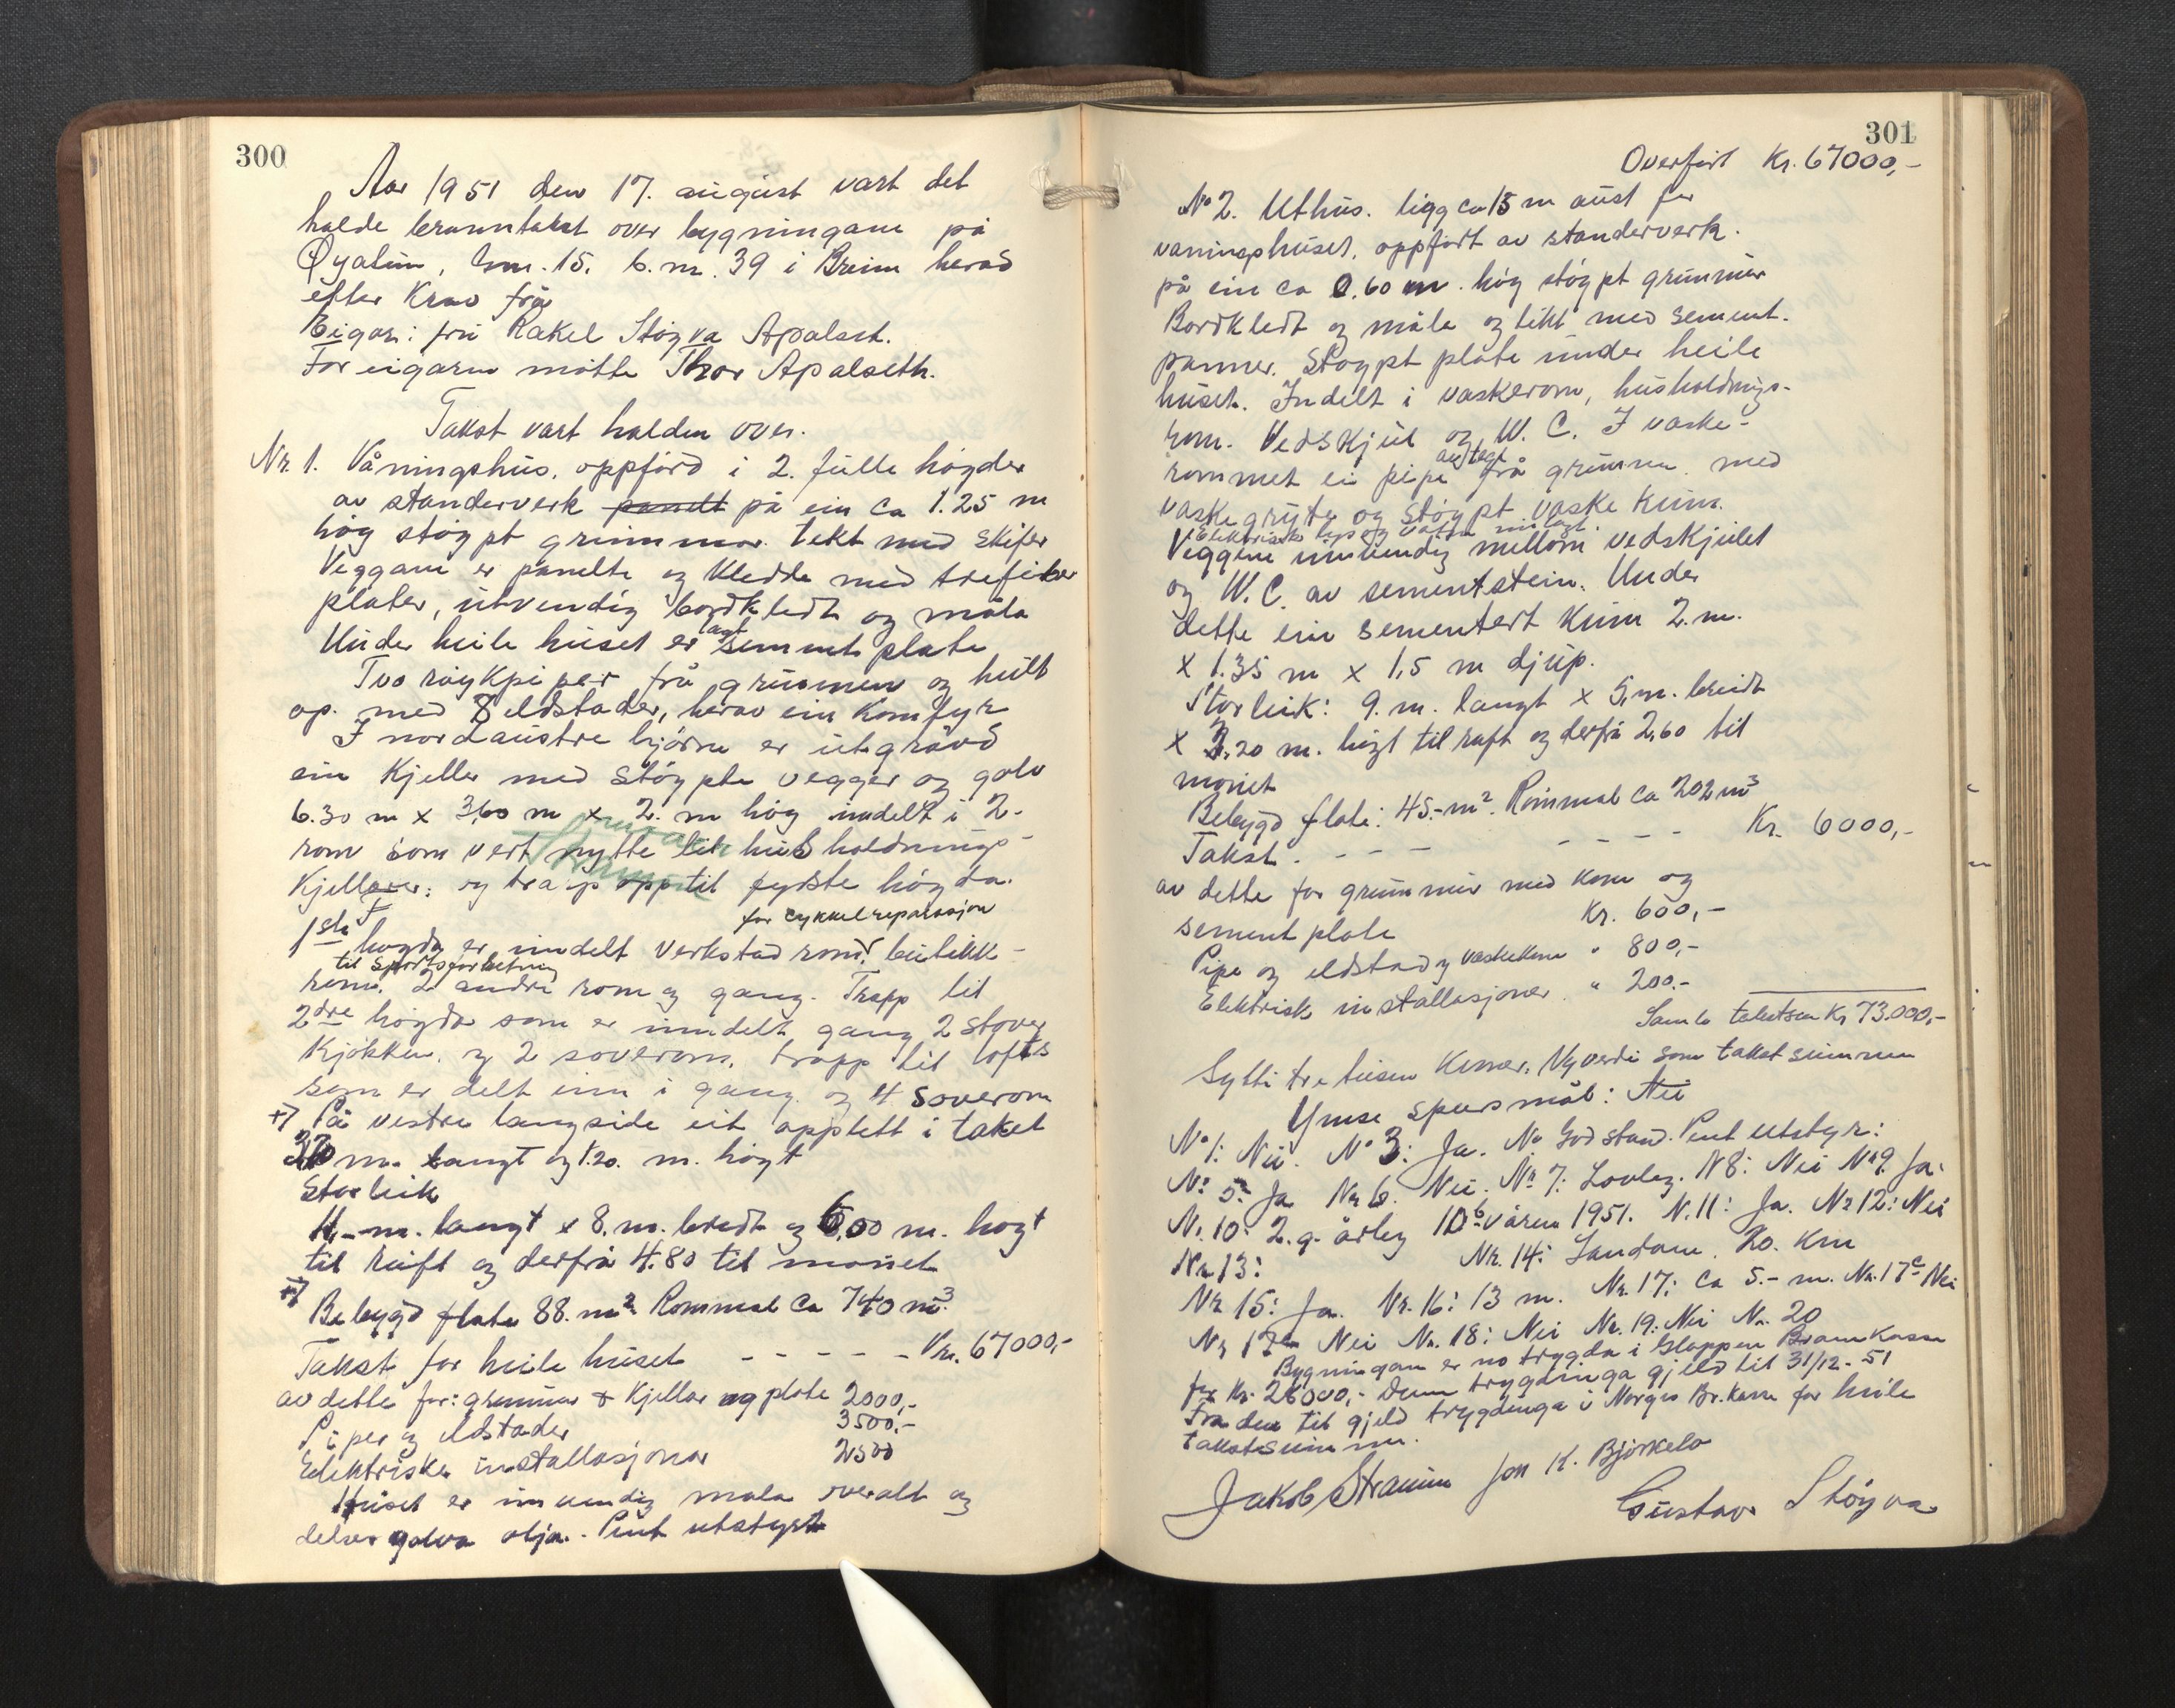 300
Aar 1951 den 17. august vart det
halde branntakst over bygningane på
Øyatun, gnr. 15. b.nr. 39 i Breim herad
etter Krav frå
Eigar: fru Rakel Støyva Apalset.
For eigaren møtte Thor Apalseth.
Takst vart halden over.
Nr. 1. Våningshus, oppførd i 2. fulle høgder
av standerverk panelt på ein ca 1.25 m
høg støypt grunnmur. Tekt med skifer
Veggane er panelte og kledde med trefiber
plater, utvendig bordkledt og måla
Under heile huset er lagt sement plate
Two røykpiper frå grunnen og heilt
op. med 8 eldstader, herav ein Komfyr
I nordaustre hjørne er utgrävd
ein Kjeller med støypte vegger og golv
6.30 m x 3,60 m x 2. m høg inndelt i 2.
rom som vert nytte til husholdnings-
Kjellarer: og trapp opp til fyrste høgda.
for cykkelreparasjon
1ste høgda er inndelt verkstad rom, butikk-
til sportsforretning
rom. 2 andre rom og gang. Trapp til
2dre høgda som er inndelt gang 2 stover
Kjøkken. og 2 soverom. trapp til lofts
som er delt inn i gang og 4 soverom
+) På vestre langside eit opplett i taket
m. langt og 1.20. m. høgt
Storleik
11,- m. langt x 8. m. bredt og 6,00 m. høgt
til raft og derfrå 4.80 til mønet
+) Bebygd flate 88. m² Rommal ca 740 m³.
Takst for heile huset - - - - - Kr. 67000,-
av dette for: grunnmur & Kjellar og plate 2000,-
Piper og eldstader 3500,-
Elektriske installasjonar 2500
Huset er innvendig mala overalt og
delvis golva olja. Pent utstyrt
301
Overført Kr. 67000,-
No 2. Uthus. ligg ca 15 m aust for
våningshuset. oppført av standerverk.
på ein ca 0.60 m. høg støypt grunnmur
Bordkledt og måla og tekt med sement.
panner. Støypt plate under heile
huset. Indelt i vaskerom, husholdnings-
rom. Vedskjul og W. C. I vaske-
rommet ei pipe frå grunnen. med
vaskegryte og støypt vaske kum.
Elektrisk lys og vatn innlagt.
Veggene innvendig millom vedskjulet
og W.C. av sementstein. Under
dette ein sementert Kum 2. m.
x 1.35 m x 1,5 m djup.
Storleik: 9. m. langt x 5, m. breidt
x 3.20 m. høgt til raft og derfrå 2.60 til
mønet
Bebygd flate: 45.- m². Rommal ca 202 m³
Takst. - - - - - - - Kr. 6000,-
av dette for grunnmur med kum og
sement plate Kr. 600,-
Pipe og eldstad og vaskekum " 800,-
Elektrisk installasjoner. " 200.-
Samla takstsum Kr 73.000,-
Sytti tre tusen Kroner. Nyverdi som takst summen
Ymse spursmål: Nei
No 1: Nei. No 3: Ja. No God stand. Pent utstyr:
No 5. Ja Nr 6. Nei. No 7: Lovleg. N 8: Nei No 9. Ja.
Nr. 10: 2. g. årleg våren 1951. N. 11: Ja. Nr 12: Nei
Nr 13: Nr. 14: Sandane. 20. Km
Nr 15: Ja. Nr. 16: 13 m. Nr. 17: Ca 5.- m. Nr. 17c Nei
Nr 17 Nei Nr. 18: Nei Nr. 19: Nei Nr. 20
Bygningane er no trygda i Gloppen Brannkasse
for Kr. 26000,- Denne trygdinga gjeld til 31/12-51
Frå den tid gjeld trygdinga i Norges Br.kasse for heile
takstsummen.
Jakob Straume Jon K. Bjørkelo
Gustav Støyva